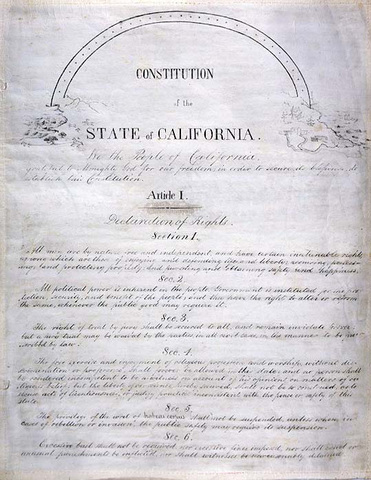 CONSTITUTION
of the
STATE of CALIFORNIA.
We the People of California
grateful to Almighty God for our freedom: in order to secure its blessings, do
establish this Constitution
Article I.
Declaration of Rights.
Section 1.
All men are by nature free and independent, and have certain inalienable rights
among which are those of enjoying and defending life and liberty, acquiring, possess-
ing and protecting property, and pursuing and obtaining safety and happiness.
Sec. 2.
All political power is inherent in the people. Government is instituted for the pro-
tection, security and benefit of the people; and they have the right to alter or reform
the same, whenever the public good may require it.
Sec. 3.
The right of trial by jury shall be secured to all, and remain inviolate forever
but a jury trial may be waived by the parties in all civil cases, in the manner to be pre-
scribed by law.
Sec. 4.
The free exercise and enjoyment of religious profession and worship, without dis-
crimination or preference, shall forever be allowed in this state: and no person shall
be rendered incompetent to be a witness on account of his opinions on matters of re-
ligious belief; but the liberty of conscience hereby secured, shall not be so construed as to
excuse acts of licentiousness, or justify practices inconsistent with the peace or safety of this
state.
Sec. 5.
The privilege of the writ of habeas corpus shall not be suspended, unless when, in
cases of rebellion or invasion, the public safety may require its suspension.
Sec. 6.
Excessive bail shall not be required, nor excessive fines imposed, nor shall cruel or
unusual punishments be inflicted, nor shall witnesses be unreasonably detained